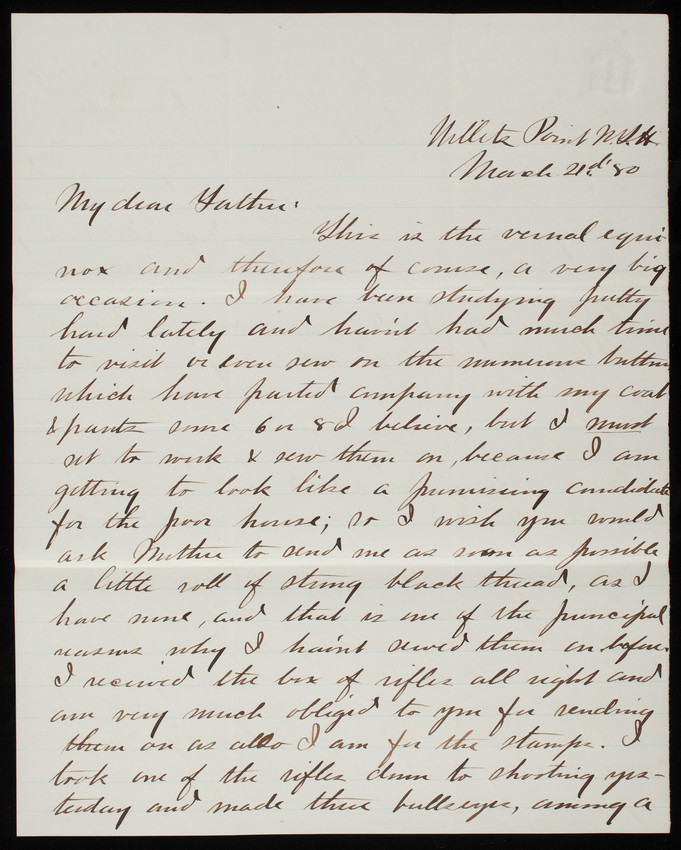 Willets Point N.Y.H.
March 21st 80
My dear Father:
This is the vernal equi-
nox and therefore of course, a very big
occasion. I have been studying pretty
hard lately and havn't had much time
to visit or even sew on the numerous buttons
which have parted company with my coat
& pants some 6 or 8 I believe, but I must
set to work & sew them on, because I am
getting to look like a promising candidate
for the poor house; so I wish you would
ask Mother to send me as soon as possible
a little roll of strong black thread, as I
have none, and that is one of the principal
reasons why I havn't sewed them on before.
I received the box of rifles all right and
am very much obliged to you for sending
them on as also I am for the stamps. I
took one of the rifles down to shooting yes-
terday and made three bullseyes, among a